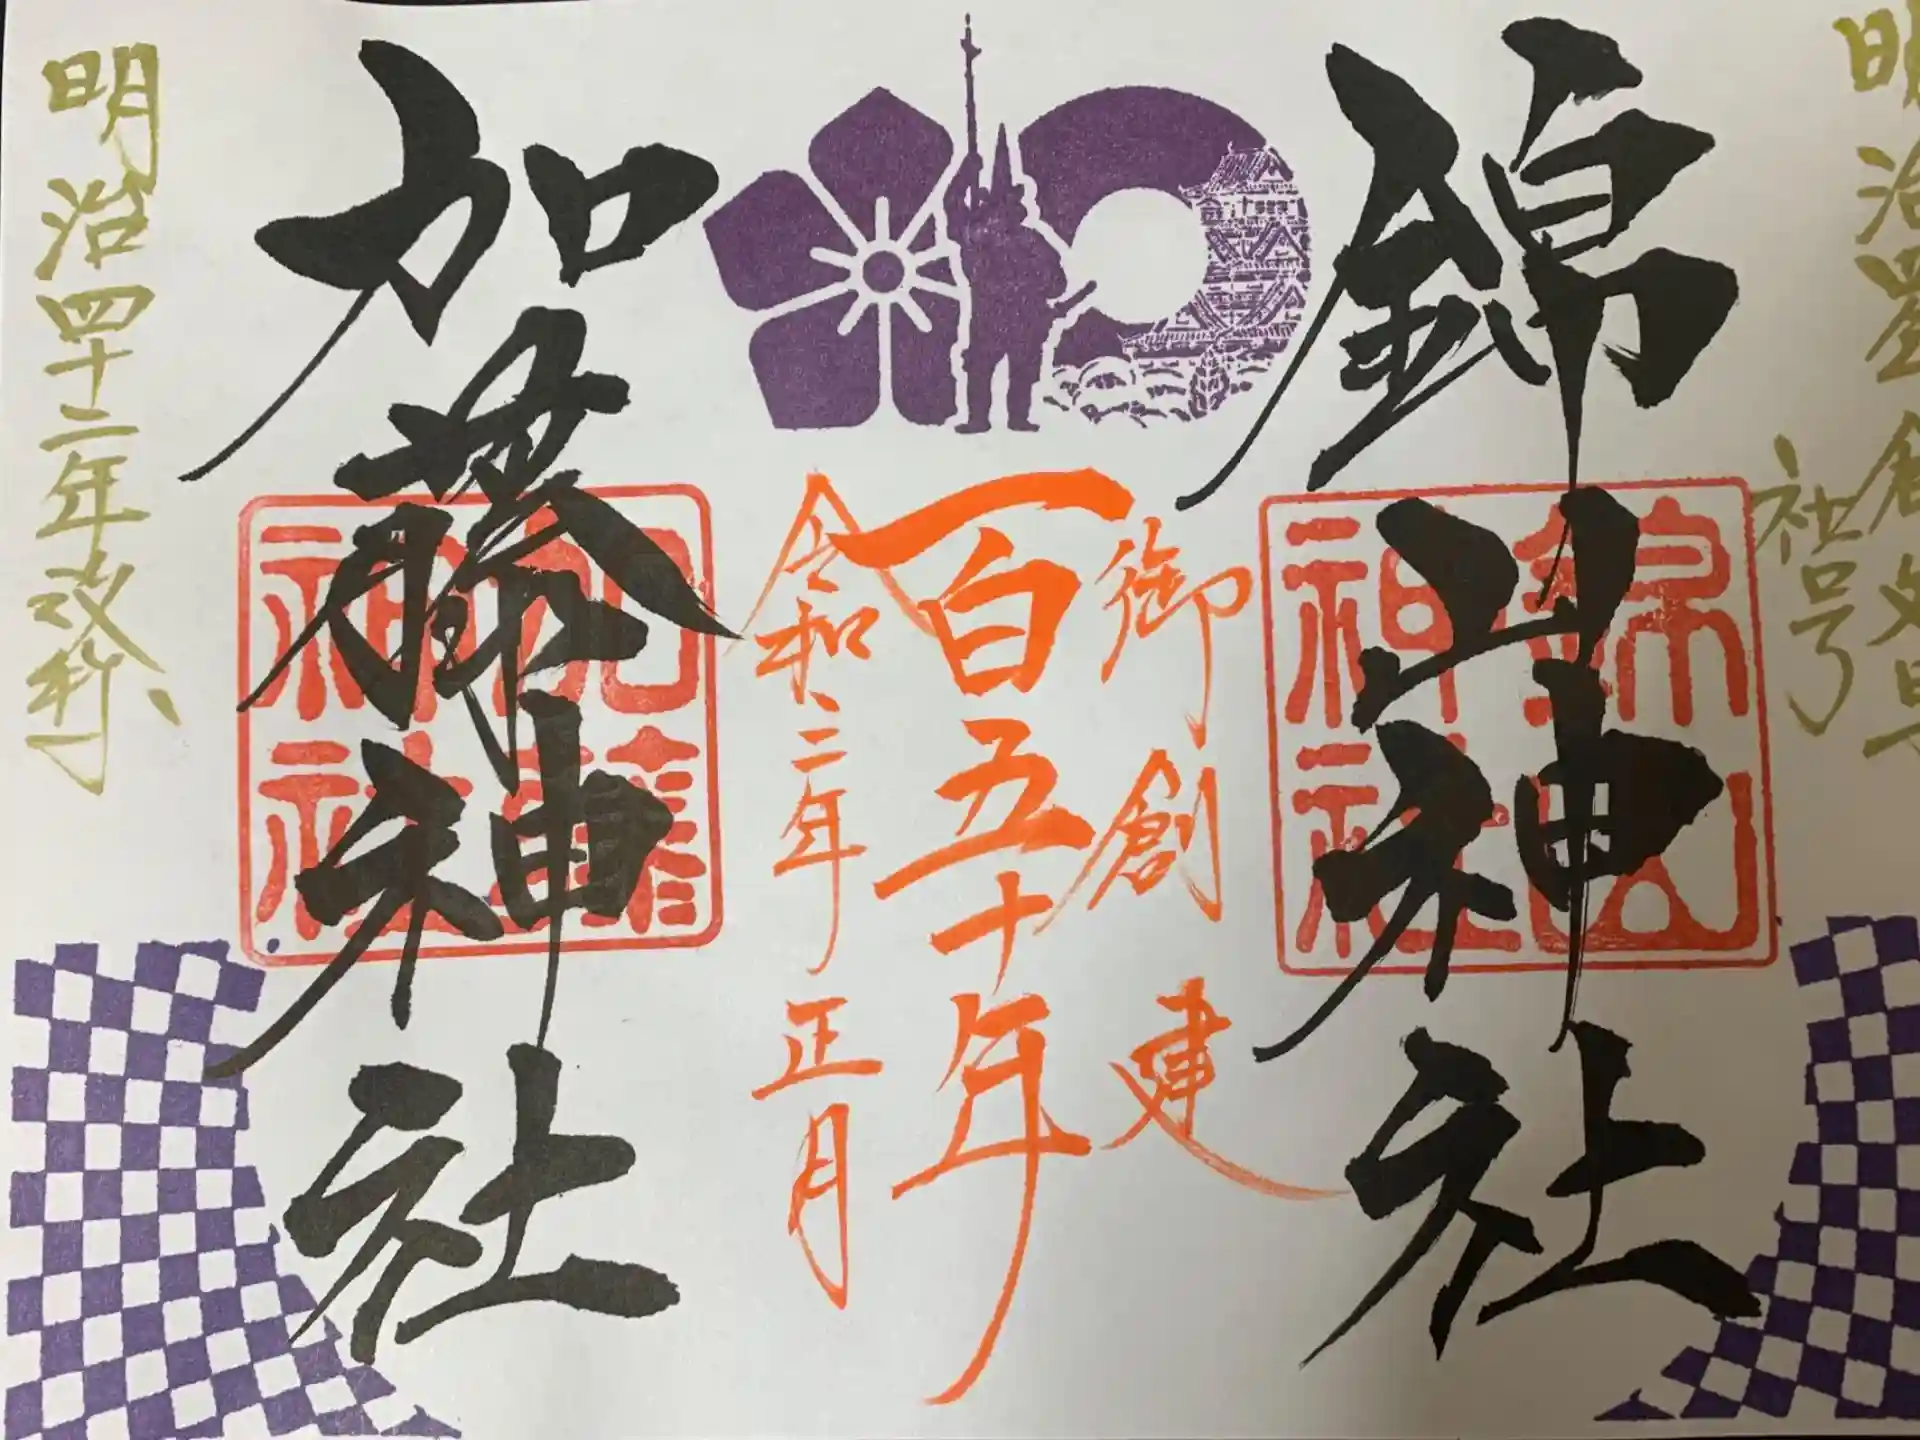 錦山神社
御創建
一百五十年
令和二年正月
加藤神社
明治四十二年改称
社号
錦山神社
加藤神社